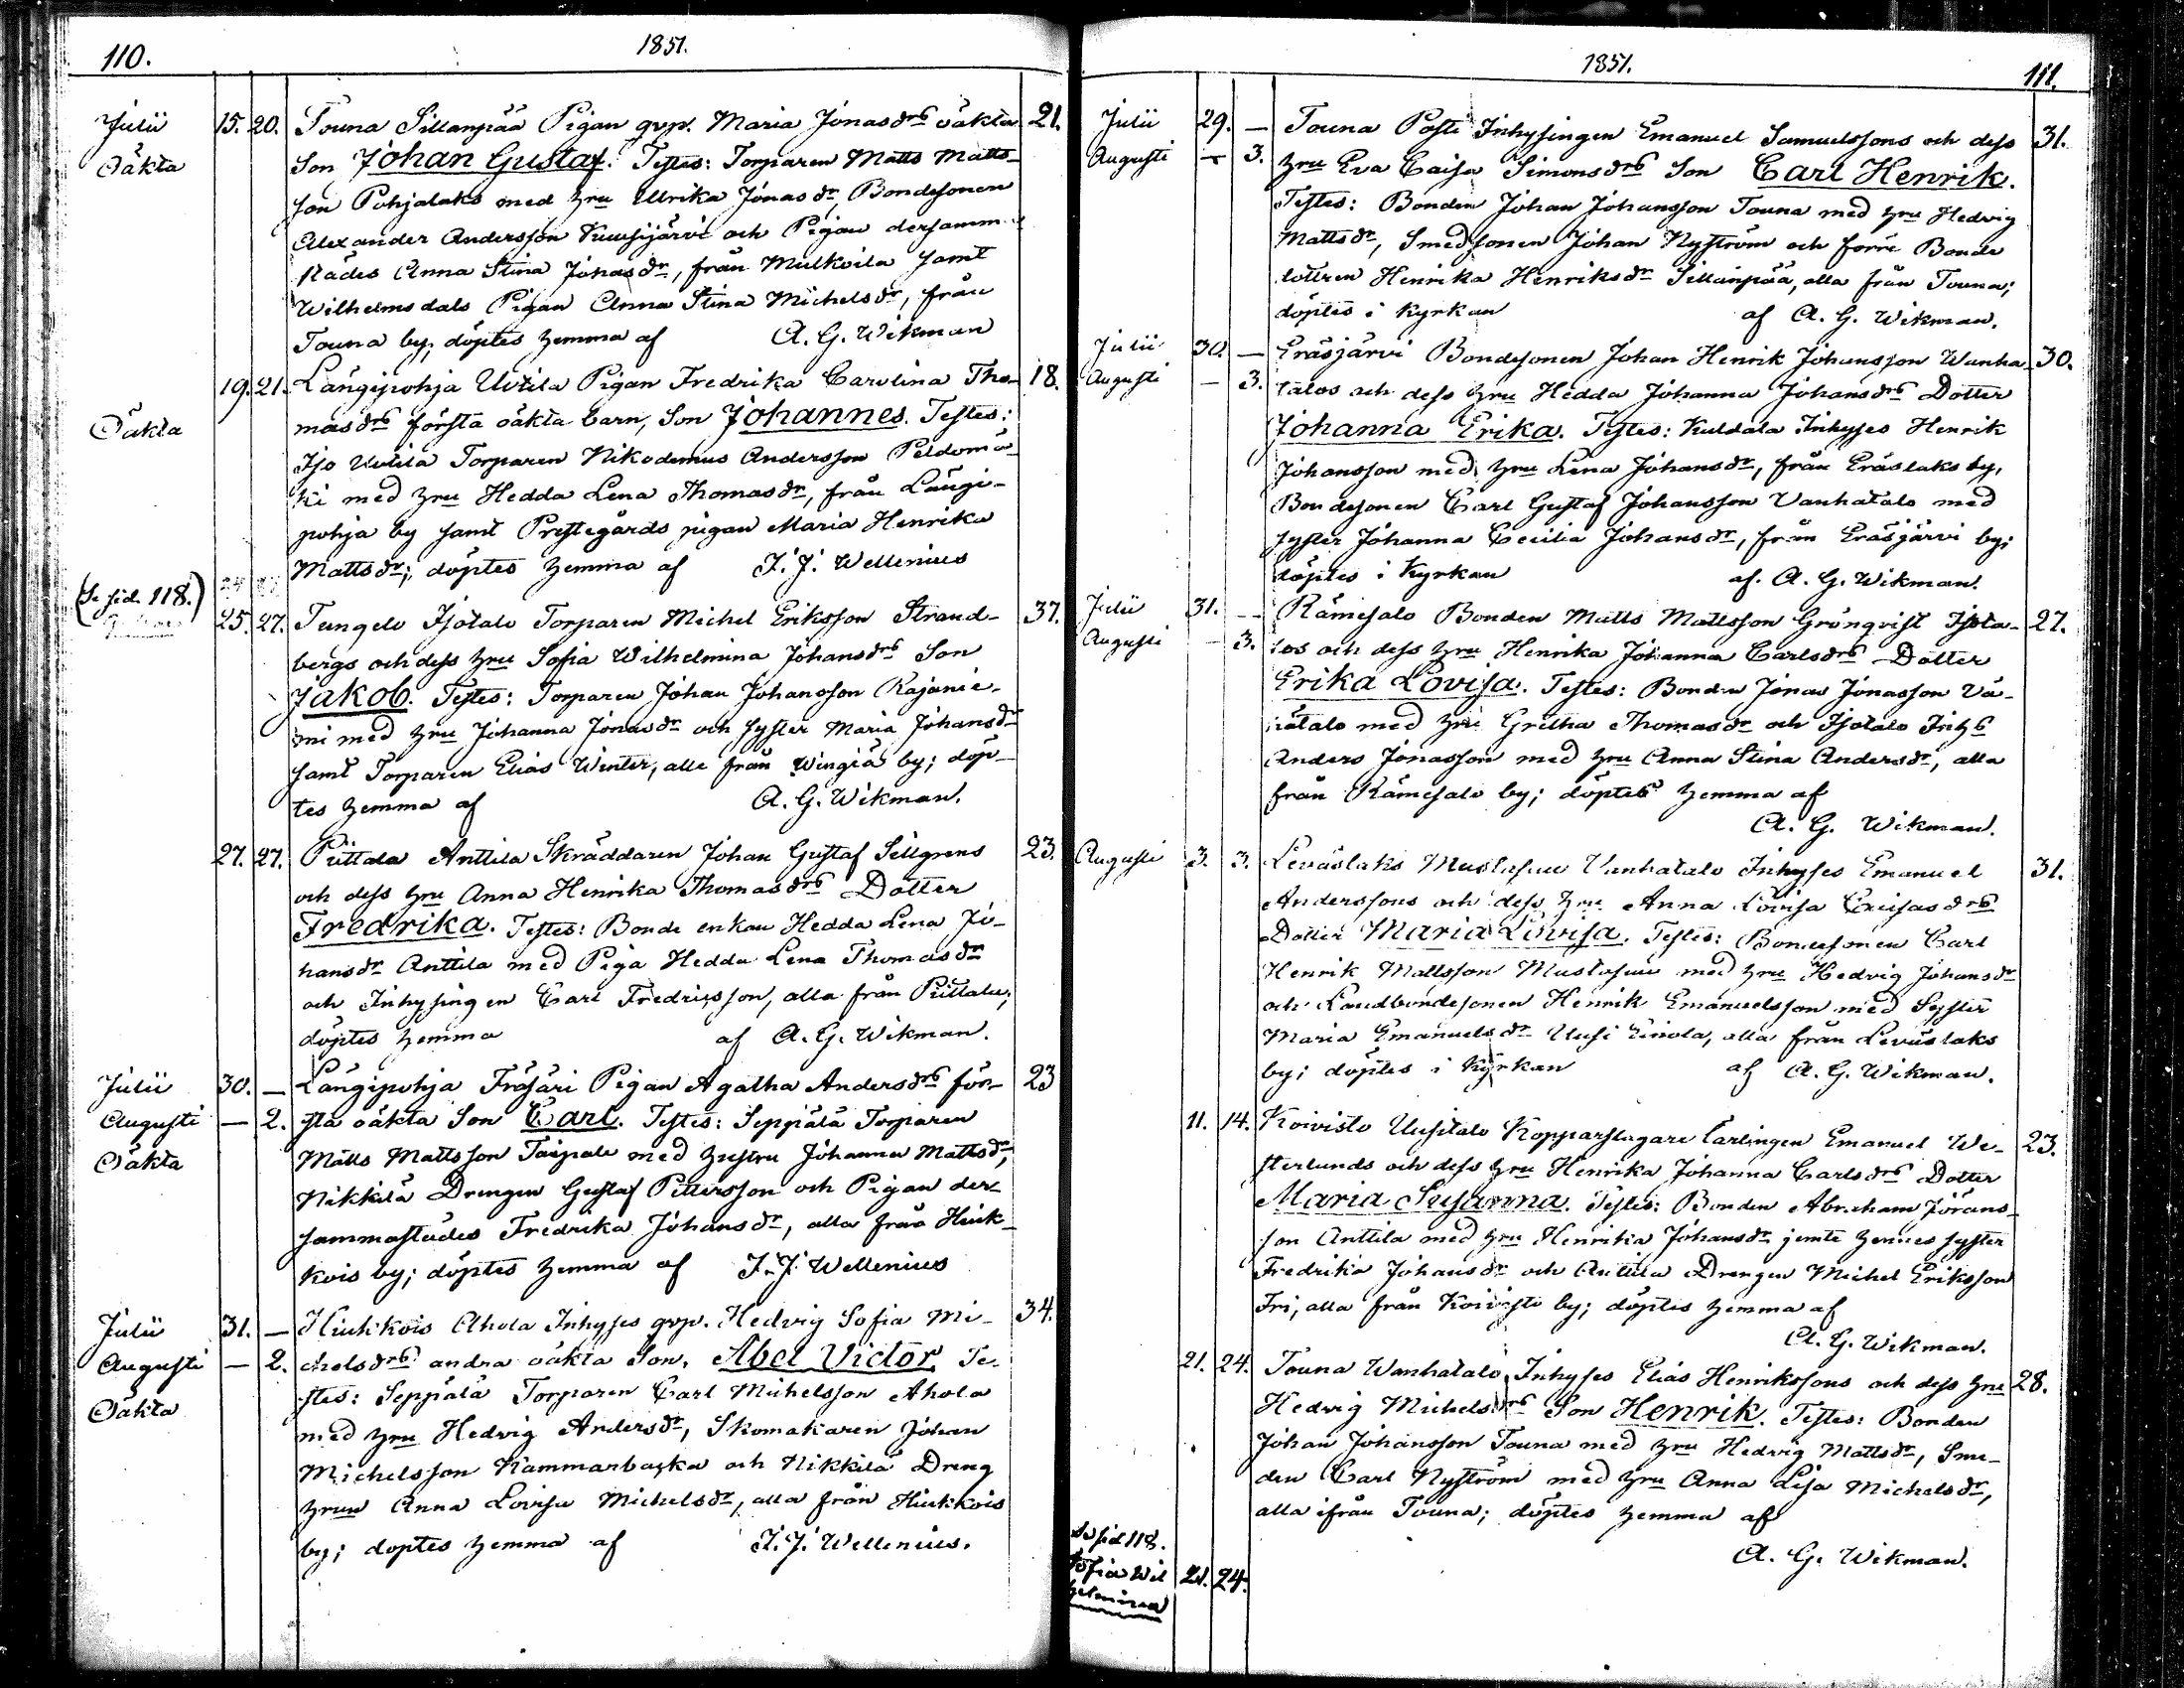 110.
1851.
Julii 15. 20. Touna Sillanpää Pigan qvp. Maria Jonasdrs oäkta 21.
Oäkta Son Johan Gustaf. Testes: Torparen Matts Matts-
son Pohjalaks med hru Ulrika Jonasdr, Bondesonen
Alexander Andersson Kuusijärvi och Pigan dersamm-
städes Anna Stina Jonasdr, från Mulkoila samt
Wilhelmsdals Pigan Anna Stina Michelsdr, från
Touna by; döptes hemma af A. G. Wikman
19. 21. Längipohja Uotila Pigan Fredrika Carolina Tho- 18.
Oäkta masdrs första oäkta barn, Son Johannes. Testes:
Iso Uotila Torparen Nikodemus Andersson Peldomä-
ki med hru Hedda Lena Thomasdr, från Längi-
pohja by samt Prestegårds pigan Maria Henrika
Mattsdr; döptes hemma af I. J. Wellenius
(Se sid. 118.)
25. 27. Tungelo Isotalo Torparen Michel Eriksson Strand- 37.
bergs och dess hru Sofia Wilhelmina Johansdrs Son
Jakob. Testes: Torparen Johan Johansson Rajanie-
mi med hru Johanna Jonasdr och syster Maria Johansdr
samt Torparen Elias Winter, alle från Wingiä by; döp-
tes hemma af A. G. Wikman.
27. 27. Püttala Anttila Skräddaren Johan Gustaf Sillgrens 23.
och dess hru Anna Henrika Thomasdrs Dotter
Fredrika. Testes: Bonde enkan Hedda Lena Jo-
hansdr Anttila med Piga Hedda Lena Thomasdr
och Inhysingen Carl Fredricsson, alla från Püttala;
döptes hemma af A. G. Wikman.
Julii 30. — Längipohja Fräsäri Pigan Agatha Andersdrs för- 23
Augusti — 2. sta oäkta Son Carl. Testes: Seppälä Torparen
Oäkta Matts Mattsson Taipale med hustru Johanna Mattsdr,
Nikkilä Drengen Gustaf Pettersson och Pigan der-
sammastädes Fredrika Johansdr, alla från Hiuk-
kois by; döptes hemma af I. J. Wellenius
Julii 31. — Hiukkois Ahola Inhyses qvp. Hedvig Sofia Mi- 34.
Augusti — 2. chelsdrs andra oäkta Son, Abel Victor. Te-
Oäkta stes: Seppälä Torparen Carl Michelsson Ahola
med hru Hedvig Andersdr, Skomakaren Johan
Michelsson Kammarbacka och Nikkilä Dreng
hrun Anna Lovisa Michelsdr, alla från Hiukkois
by; doptes hemma af I. J. Wellenius.
1851.
111.
Julii 29. — Touna Posti Inhysingen Emanuel Samuelssons och dess 31.
Augusti — 3. hru Eva Caisa Simonsdrs Son Carl Henrik.
Testes: Bonden Johan Johansson Touna med hru Hedvig
Mattsdr, Smedsonen Johan Nyström och forre Bonde
dottren Henrika Henriksdr Sillanpää, alla från Touna;
döptes i Kyrkan af A. G. Wikman.
Julii 30. — Eräsjärvi Bondesonen Johan Henrik Johansson Wanha- 30.
Augusti — 3. talos och dess hru Hedda Johanna Johansdrs Dotter
Johanna Erika. Testes: Kuldala Inhyses Henrik
Johansson med hru Lena Johansdr, från Eräslaks by,
Bondesonen Carl Gustaf Johansson Vanhatalo med
syster Johanna Cecilia Johansdr, från Eräsjärvi by;
döptes i Kyrkan af. A. G. Wikman.
Julii 31. — Rämesalo Bonden Matts Mattsson Grönqvist Isota- 27.
Augusti — 3. los och dess hru Henrika Johanna Carlsdrs Dotter
Erika Lovisa. Testes: Bonden Jonas Jonasson Vä-
hätalo med hru Gretha Thomasdr och Isotalo Inhs
Anders Jonasson med hru Anna Stina Andersdr, alla
från Rämesalo by; döptes hemma af
A. G. Wikman.
Augusti 3. 3. Leväslaks Mustasuu Vanhatalo Inhyses Emanuel 31.
Anderssons och dess hru Anna Lovisa Caisasdrs
Dotter Maria Lovisa. Testes: Bondesonen Carl
Henrik Mattsson Mustasuu med hru Hedvig Johansdr
och Landbondesonen Henrik Emanuelsson med Syster
Maria Emanuelsdr Uusi Einola, alla från Leväslaks
by; döptes i Kyrkan af A. G. Wikman.
11. 14. Koivisto Uusitalo Kopparslagare Lärlingen Emanuel We- 23.
sterlunds och dess hru Henrika Johanna Carlsdrs Dotter
Maria Susanna. Testes: Bonden Abraham Jörans-
son Anttila med hru Henrika Johansdr jemte hennes syster
Fredrika Johansdr och Anttila Drengen Michel Eriksson
Fri, alla från Koivisto by; döptes hemma af
A. G. Wikman.
21. 24. Touna Wanhatalo Inhyses Elias Henrikssons och dess hru 28.
Hedvig Michelsdrs Son Henrik. Testes: Bonden
Johan Johansson Touna med hru Hedvig Mattsdr, Sme-
den Carl Nyström med hru Anna Lisa Michelsdr,
alla ifrån Touna; döptes hemma af
A. G. Wikman.
Se sid 118.
Sofia Wil 21. 24.
helmina